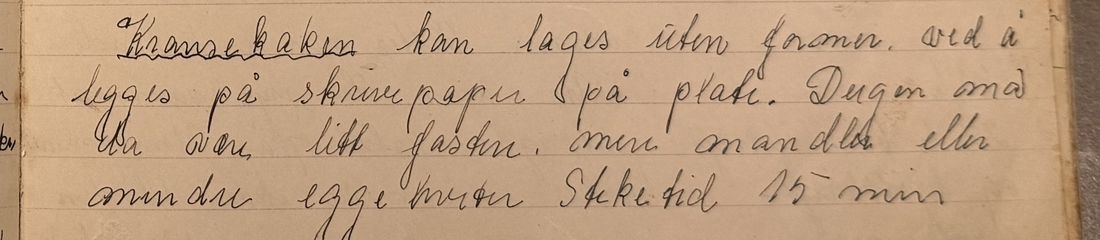 Kransekaken kan lages uten former. ved å
legges på skrivepapir på plate. Deigen må
da være litt fastere. mere mandler eller
mindre eggehviter Steketid 15 min